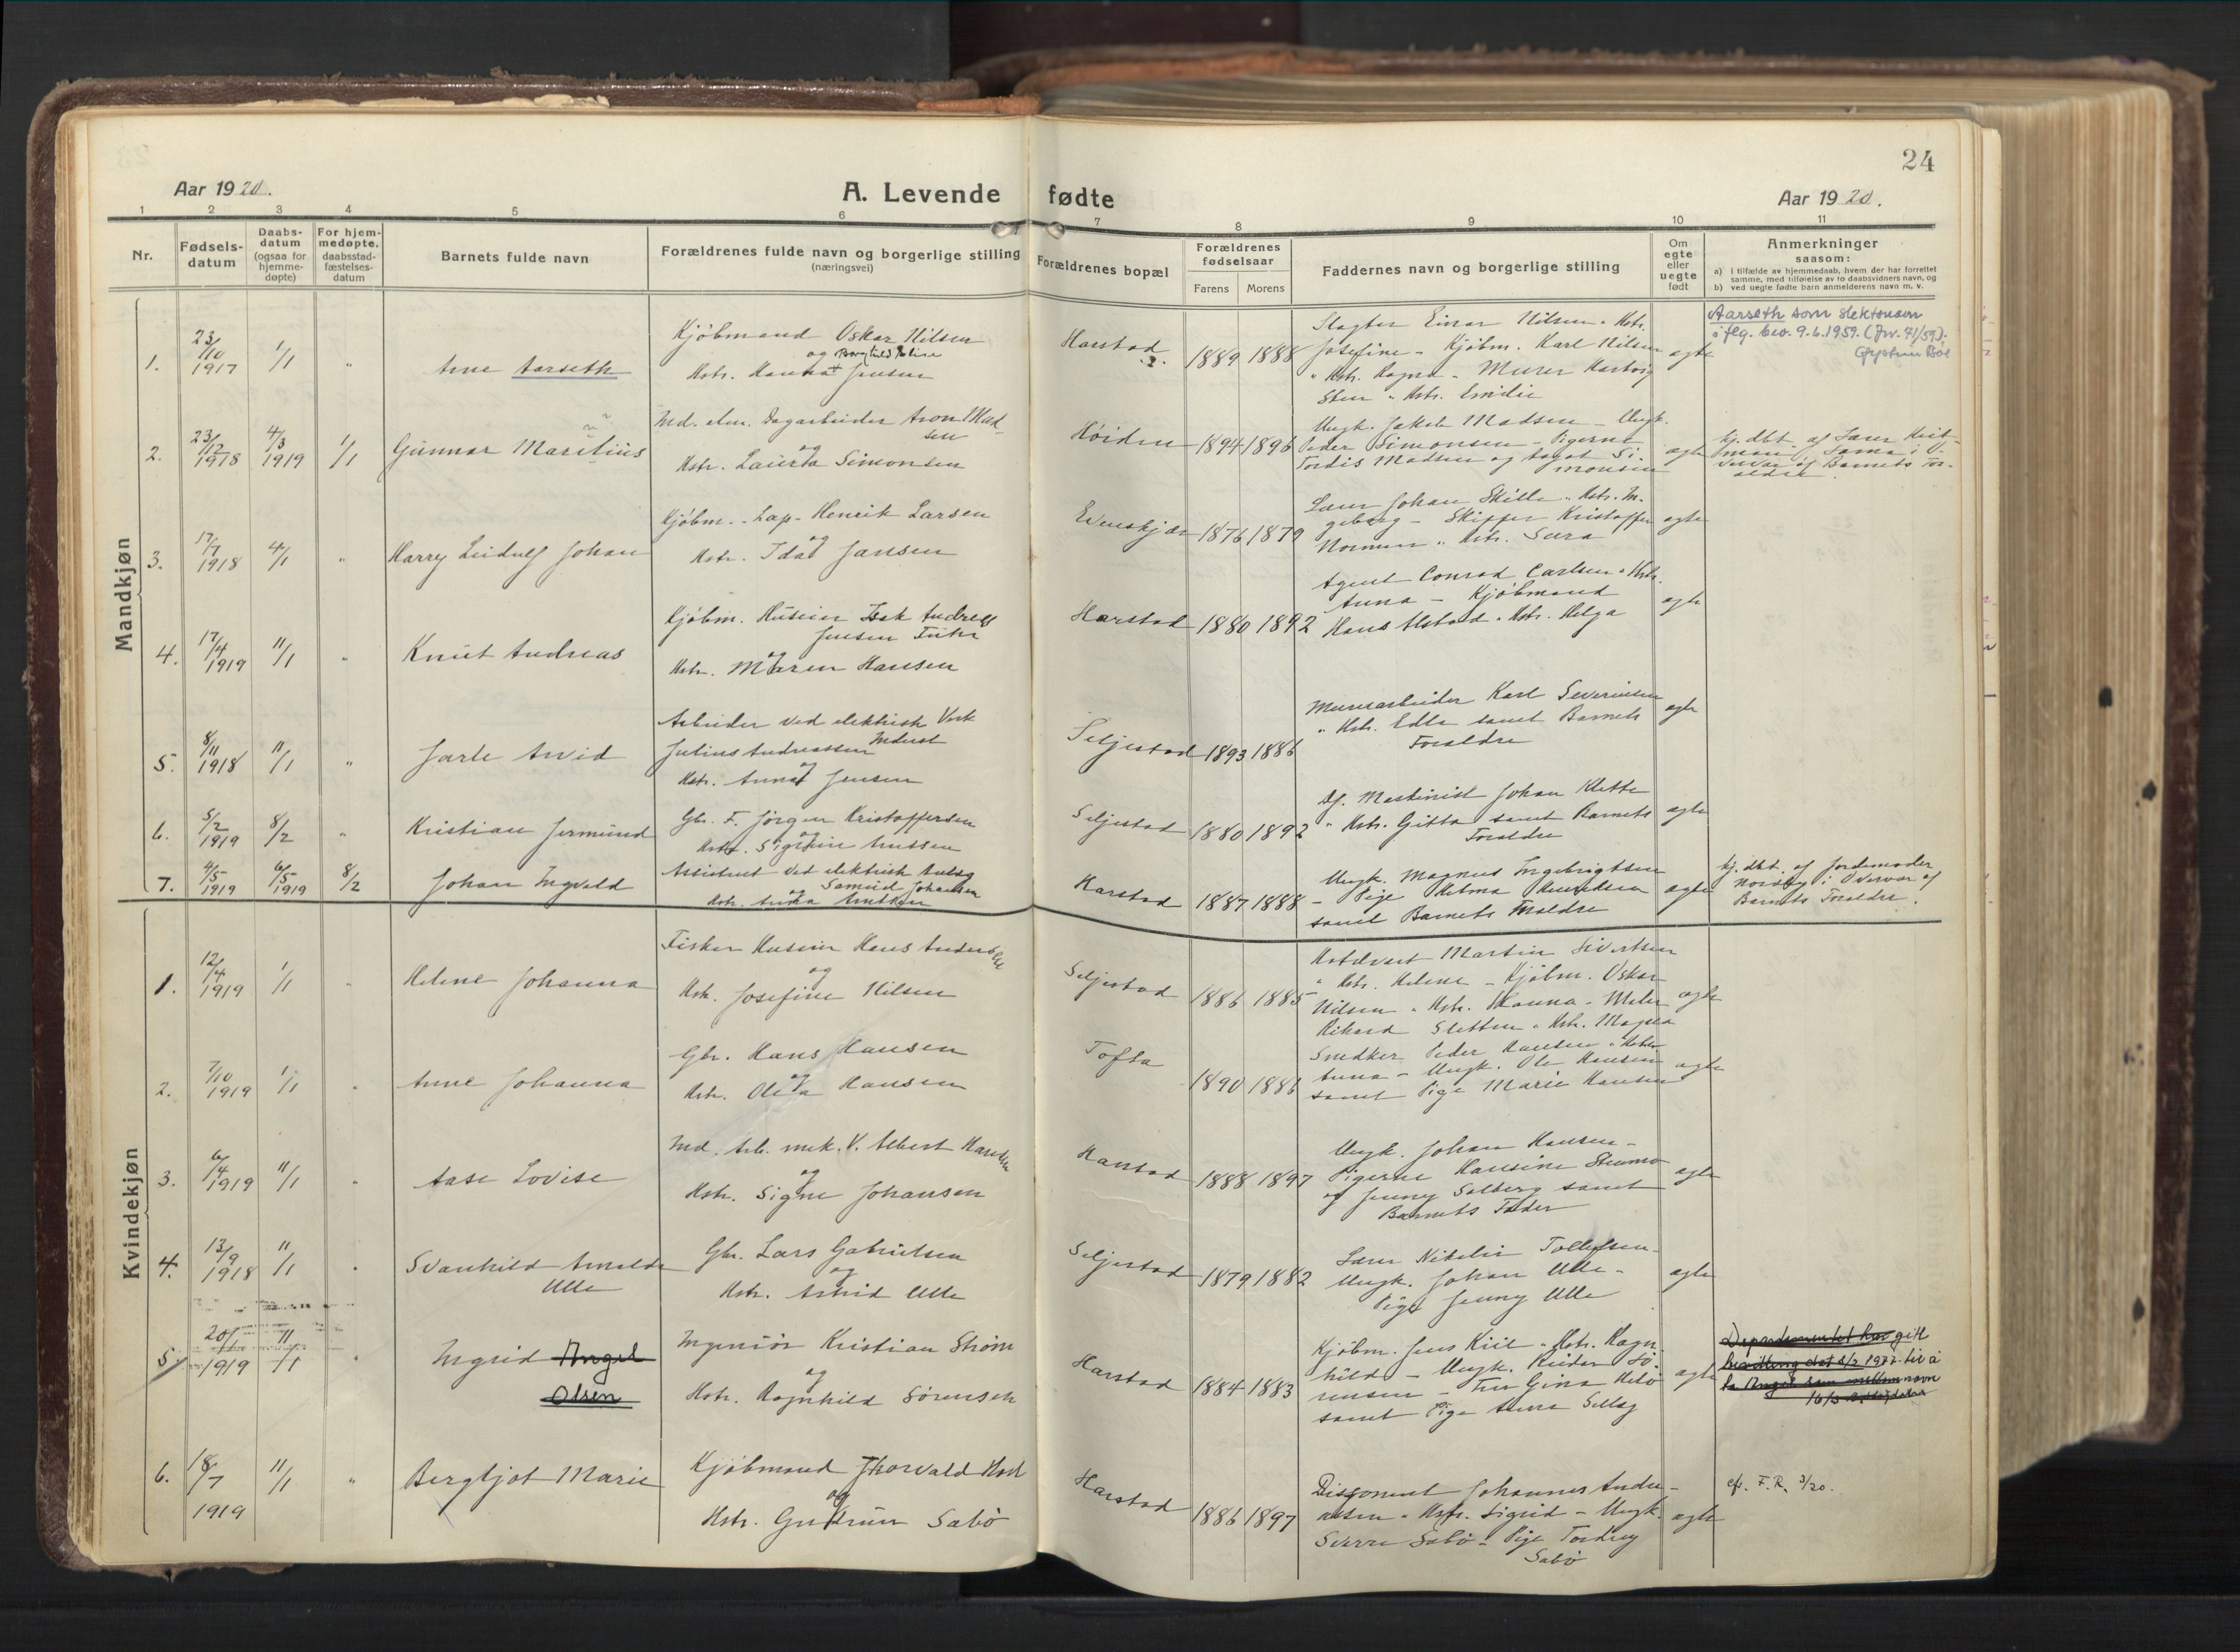 24
Aar 1920.
A. Levende fødte
Aar 1920.
1 2 3 4 5 6 7 8 9 10 11
Nr.
Fødsels-
datum
Daabs-
datum
(ogsaa for
hjemme-
døpte)
For hjem-
medøpte,
daabsstad-
fæstelses-
datum
Barnets fulde navn
Forældrenes fulde navn og borgerlige stilling
(næringsvei)
Forældrenes bopæl
Forældrenes
fødselsaar
Farens Morens
Faddernes navn og borgerlige stilling
Om
egte
eller
uegte
født
Anmerkninger
saasom:
a) i tilfælde av hjemmedaab, hvem der har forrettet
samme, med tilføielse av to daabsvidners navn, og
b) ved uegte fødte barn anmelderens navn m. v.
Mandkjøn
1.
23/10
1917
1/1
"
Arne Aarseth
Kjøbmand Oskar Nilsen
og Borghild Joline
Hstr. Hanna Jensen
Harstad
1889 1888
Slagter Einar Nilsen " Hstr.
Josefine - Kjøbm. Karl Nilsen
" Hstr. Ragna - Murer Hartvig
Sten " Hstr. Emilie
egte
Aarseth som slektsnavn
iflg. bev. 9.6.1959. (Jnr. 41/59).
2.
23/12
1918
4/3
1919
1/1
Gunnar Maritius
Ind. elm. Dagarbeider Aron Mad-
sen
og
Hstr. Laura Simonsen
Høiden
1894 1896
Ungk. Jakob Madsen - Ungk.
Peder Simonsen - Pigerne
Tordis Madsen og Aagot Si-
monsen
egte
hj. dbt. af Lærer
3.
17/7
1918
4/1
"
Harry Leidulf Johan
Kjøbm. - Kap. Henrik Larsen
og
Hstr. Ida Jansen
Evenskjær
1876 1879
Lærer Johan Skille " Hstr. In-
geborg - Skipper Kristoffer
Normann " Hstr. Sara
egte
4.
17/4
1919
11/1
"
Knut Andreas
Kjøbm. Huseier Isak Andreas
Jensen
og
Hstr. Maren Hansen
Harstad
1880 1892
Agent Conrad Carlsen " Hstr.
Anna - Kjøbmand
Hans Alstad " Hstr. Helga
egte
5.
8/11
1918
11/1
"
Jarle Arvid
Arbeider ved elektrisk Verk
Julius Andreassen
og
Hstr. Anna Jensen
Seljestad
1893 1886
Murerarbeider Karl Severinsen
" Hstr. Edla samt Barnets
Forældre
egte
6.
5/2
1919
8/2
"
Kristian Jermund
Gbr. F. Jørgen Kristoffersen
og
Hstr. Sigrun Antsen
Seljestad
1880 1892
Df. Maskinist Johan Klette
" Hstr. Gitta samt Barnets
Forældre
egte
7.
4/5
1919
6/5
1919
8/2
Johan Ingvald
Assistent ved elektrisk Anlæg
Samuel Johansen
og
Harstad
1887 1888
Ungk. Magnus Ingebrigtsen
- Pige Helma Knudsen
samt Barnets Forældre
egte
hj. dbt. af Jordemoder
Nordby i Overvær af
Barnets Forældre.
Kvindekjøn
1.
12/4
1919
1/1
"
Helene Johanna
Fisker Huseier Hans Andersen
og
Hstr. Josefine Nilsen
Seljestad
1886 1885
Hotelvert Martin Sivertsen
" Hstr. Helene - Kjøbm. Oskar
Nilsen " Hstr. Hanna - Maler
Rikard Sletten " Hstr. Magna
egte
2.
7/10
1919
1/1
"
Anne Johanna
Gbr. Hans Hansen
og
Hstr. Oleva Hansen
Tofta
1890 1886
Snedker Peder Hansen " Hstr.
Anna - Ungk. Ole Hansen
samt Pige Marie Hansen
egte
3.
6/4
1919
11/1
"
Aase Lovise
Ind. Arb. mek. V. Albert Hansen
og
Hstr. Signe Johansen
Harstad
1888 1897
Ungk. Johan Hansen -
Pigerne Hansine Strømø
og Jenny Solberg samt
Barnets Fader
egte
4.
13/9
1918
11/1
"
Svanhild Arnalda
Ulle
Gbr. Lars Gabrielsen
og
Hstr. Astrid Ulle
Seljestad
1879 1882
Lærer Nikolai Tollefsen -
Ungk. Johan Ulle -
Pige Jenny Ulle
egte
5.
20/1
1919
11/1
"
Ingrid Angel
Olsen
Ingeniør Kristian Strøm
og
Hstr. Ragnhild Sørensen
Harstad
1884 1883
Kjøbm. Jens Kiil " Hstr. Ragn-
hild - Ungk. Reidar Sø-
rensen - Fru Gina Helø
samt Pige Anna Selleg
egte
Departementet har gitt
bevilling dat 4/2 1977 til å
ta Angel som mellomnavn
6.
18/7
1919
11/1
"
Bergljot Marie
Kjøbmand Thorvald Hol
og
Hstr. Gudrun Sabø
Harstad
1886 1897
Disponent Johannes Andre-
assen " Hstr. Sigrid - Ungk.
Sverre Sabø - Pige Tordrey
Sabø
egte
cfr. F. R. 3/20.